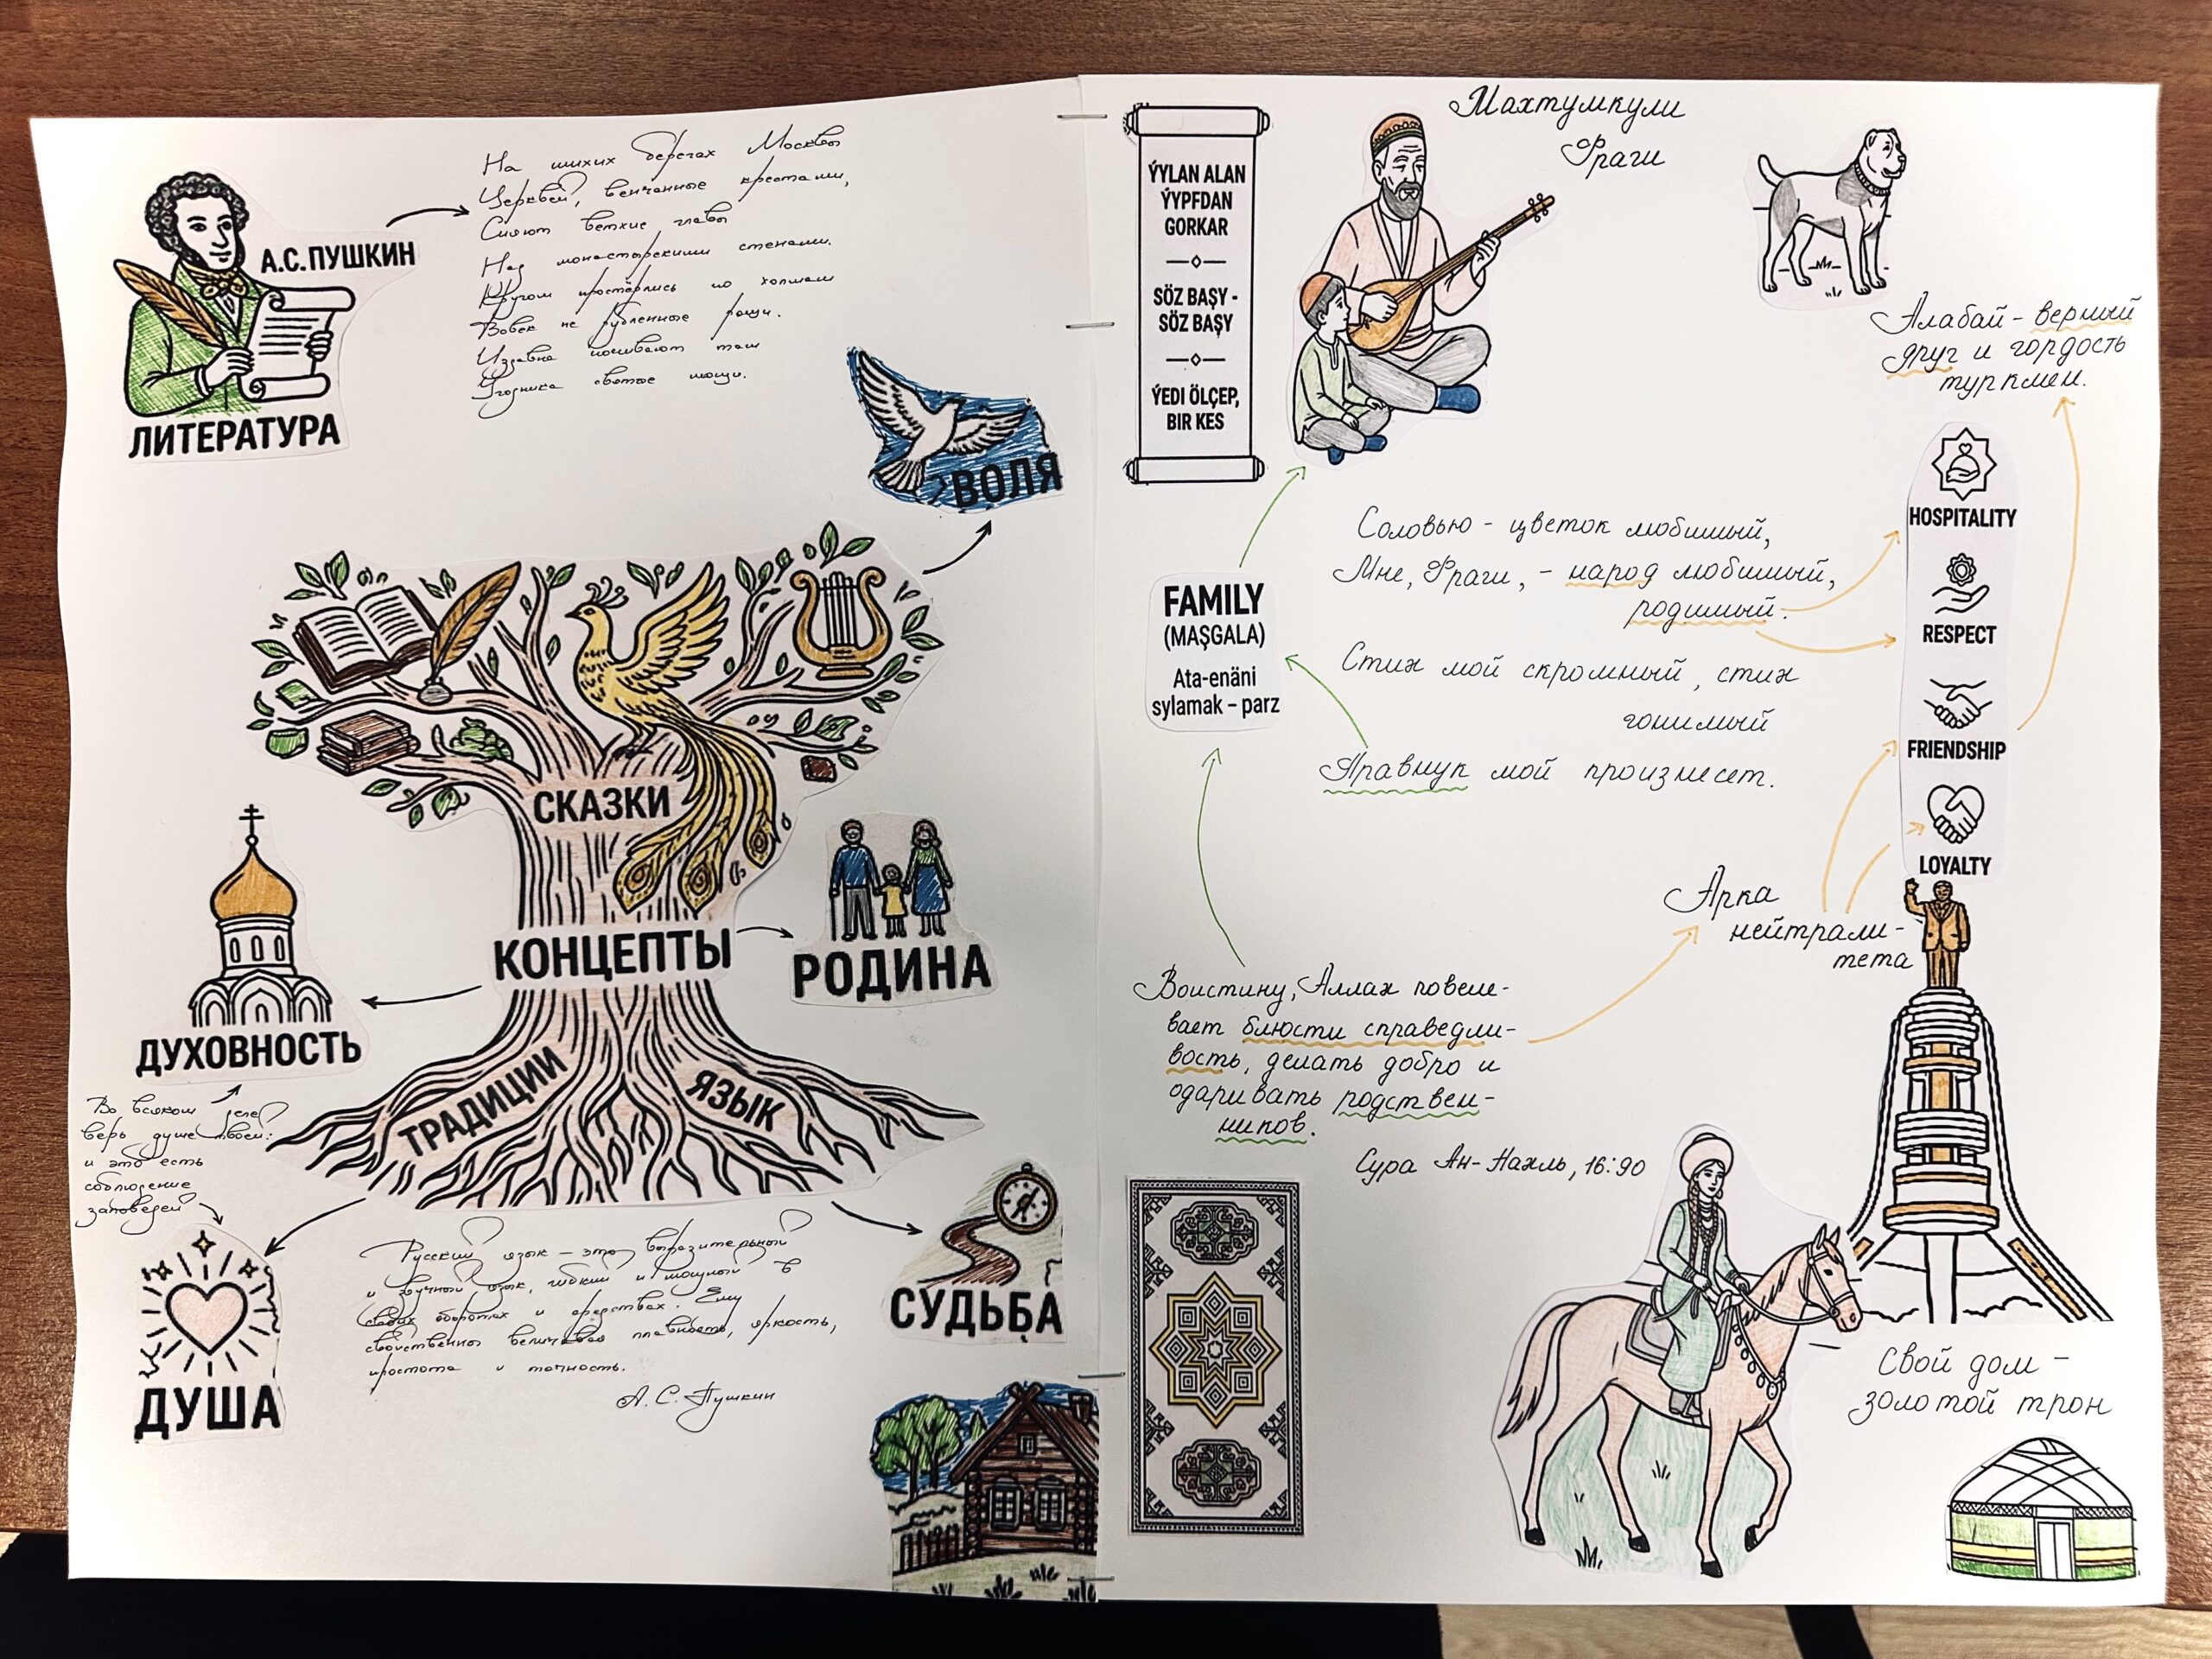 А.С.ПУШКИН
ЛИТЕРАТУРА
На тихих берегах Москвы
Церквей, венчанные крестами,
Сияют ветхие главы
Над монастырскими стенами.
Кругом простёрлись по холмам
Вовек не рубленные рощи.
Издавна почивают там
Угодника святые мощи.
ВОЛЯ
СКАЗКИ
КОНЦЕПТЫ
РОДИНА
ДУХОВНОСТЬ
ТРАДИЦИИ
ЯЗЫК
Во всяком деле
верь душе твоей:
и это есть
соблюдение
заповедей
ДУША
Русский язык – это выразительный
и звучный язык, гибкий и мощный в
своих оборотах и средствах. Ему
свойственны величавая плавность, яркость,
простота и точность.
А. С. Пушкин
СУДЬБА
ÝYLAN ALAN
ÝYPFDAN
GORKAR
SÖZ BAŞY -
SÖZ BAŞY
ÝEDI ÖLÇEP,
BIR KES
Махтумкули
Фраги
Алабай – верный
друг и гордость
туркмен.
FAMILY
(MAŞGALA)
Ata-enäni
sylamak – parz
Соловью – цветок любимый,
Мне, Фраги, – народ любимый,
родимый.
Стих мой скромный, стих
гонимый
Правнук мой произнесет.
HOSPITALITY
RESPECT
FRIENDSHIP
LOYALTY
Арка
нейтрали-
тета
Воистину, Аллах повеле-
вает блюсти справедли-
вость, делать добро и
одаривать родствен-
ников.
Сура Ан-Нахль, 16:90
Свой дом –
золотой трон